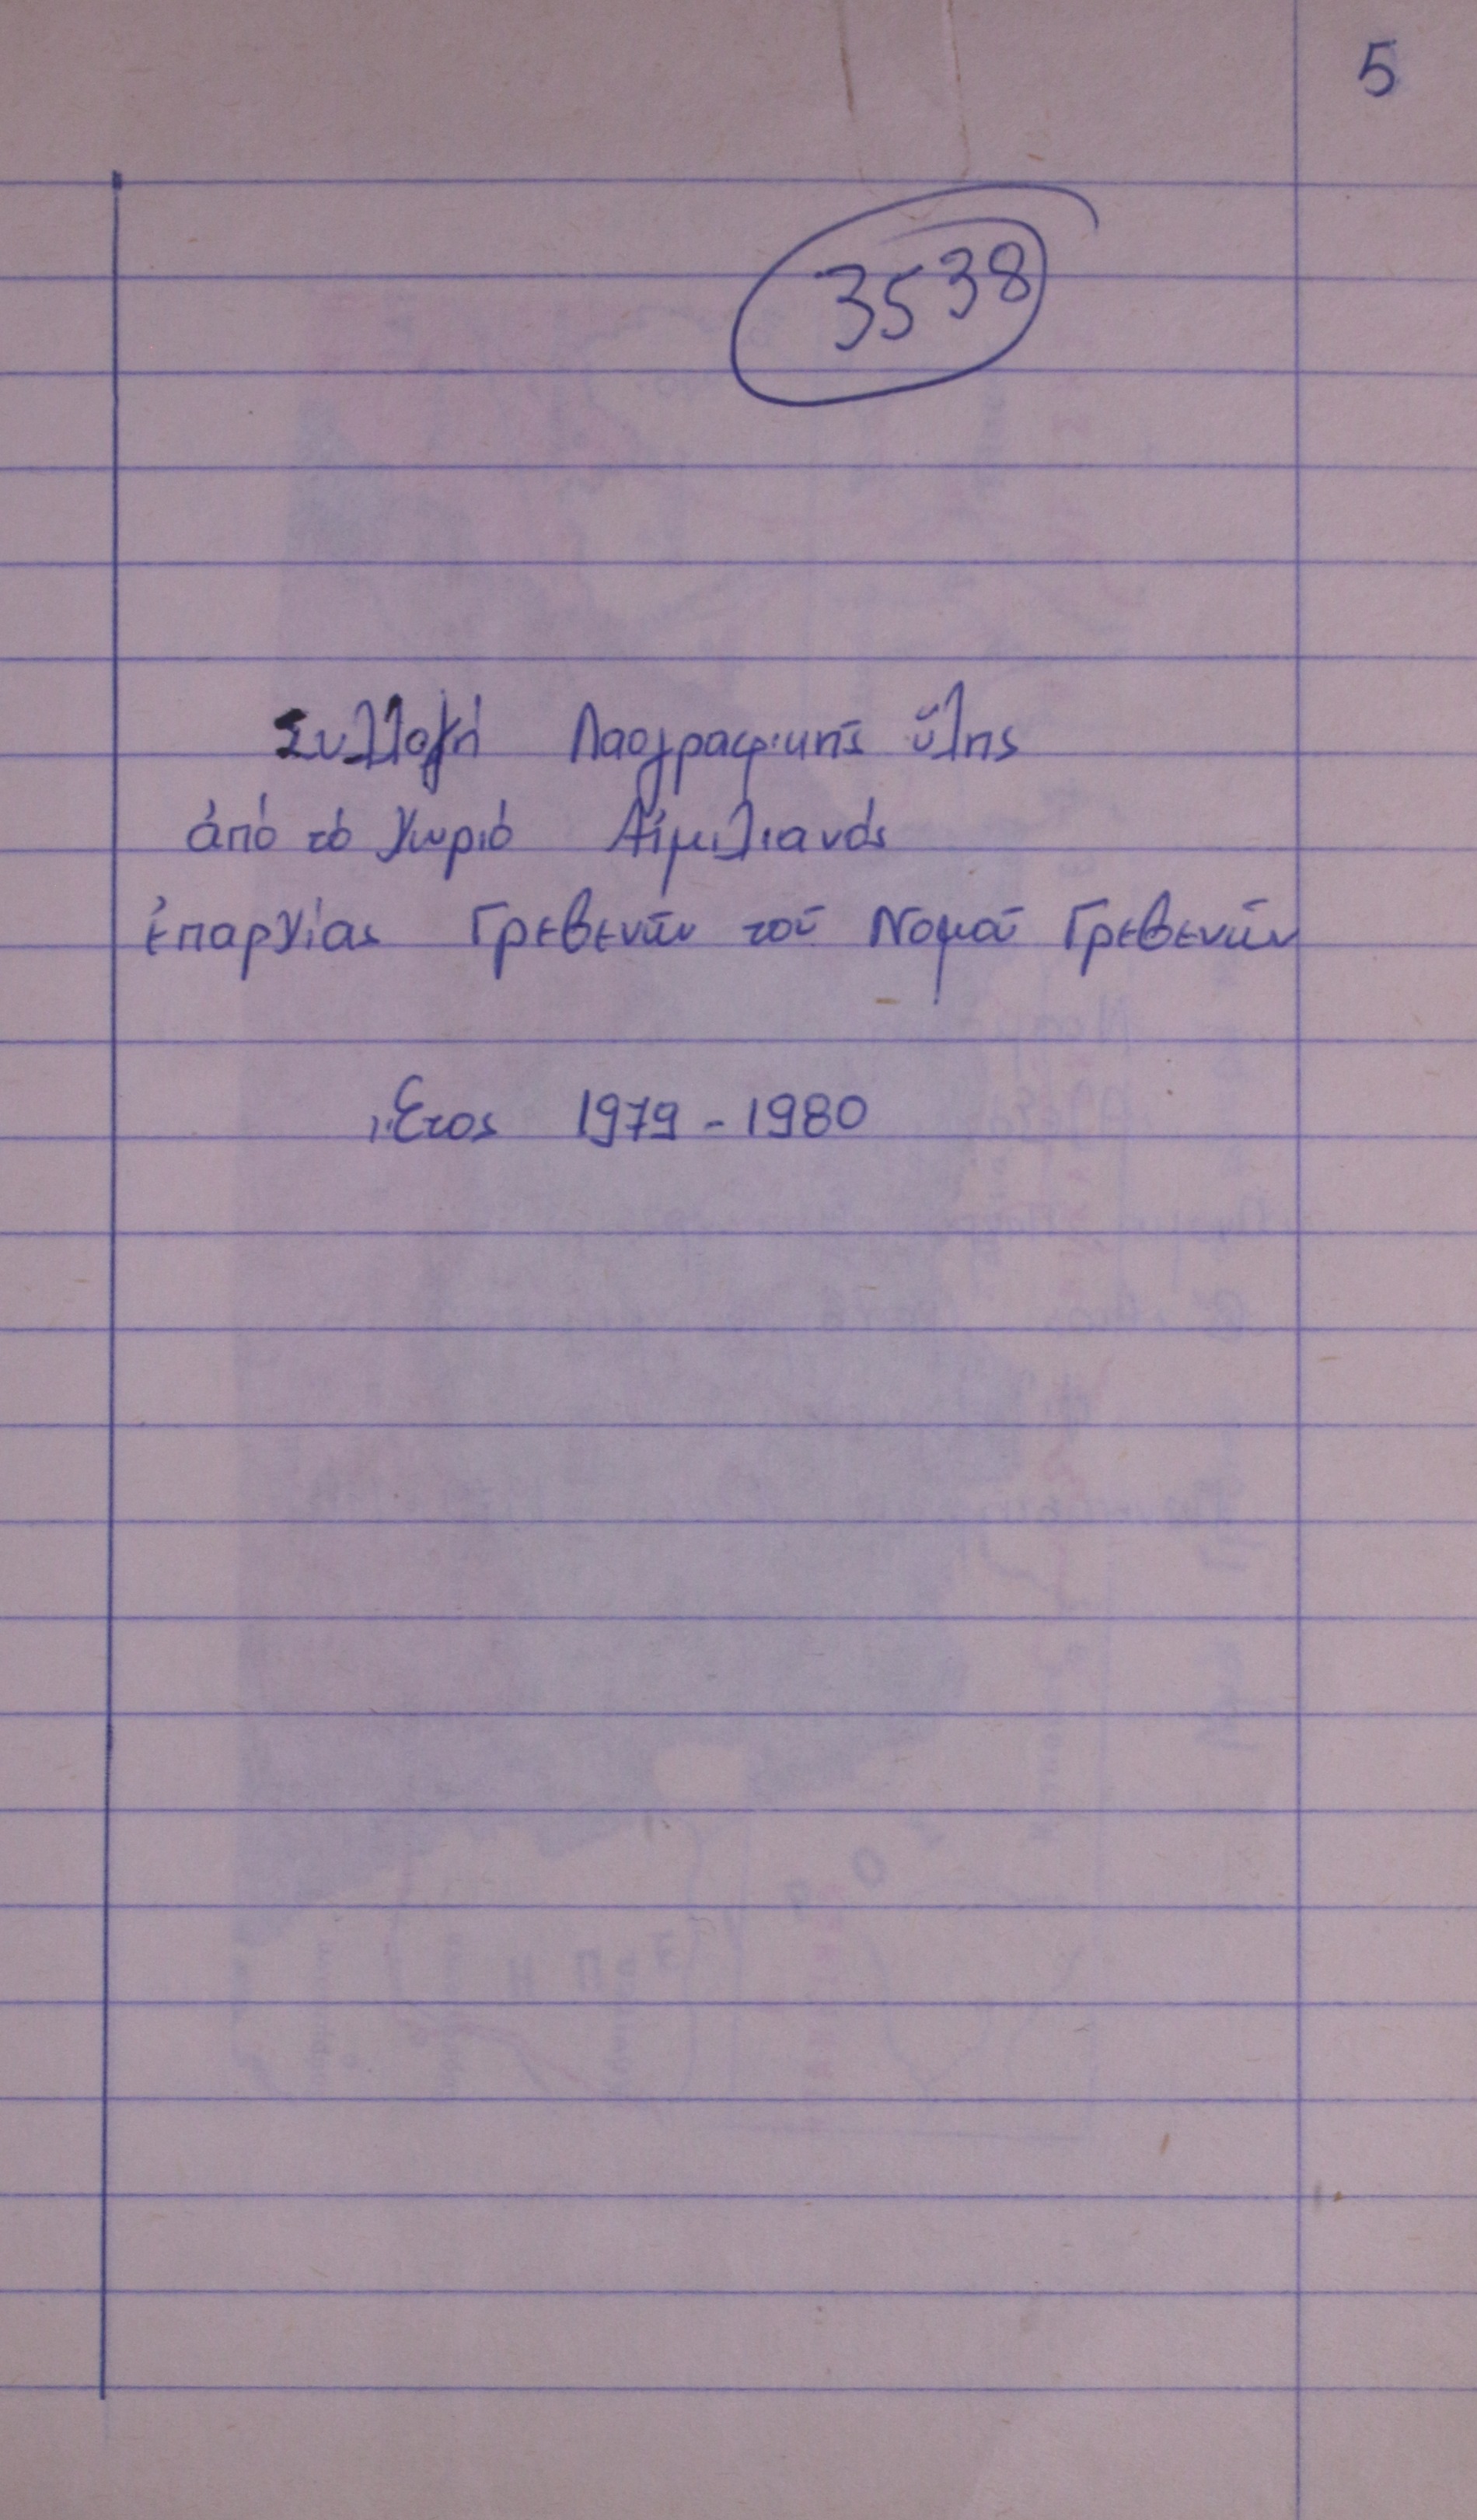 5
3538
Συλλογή Λαογραφικῆς ὕλης
ἀπό τό Χωριό Αἰμιλιανός
ἐπαρχίας Γρεβενῶν τοῦ Νομοῦ Γρεβενῶν
Ἔτος 1979 - 1980